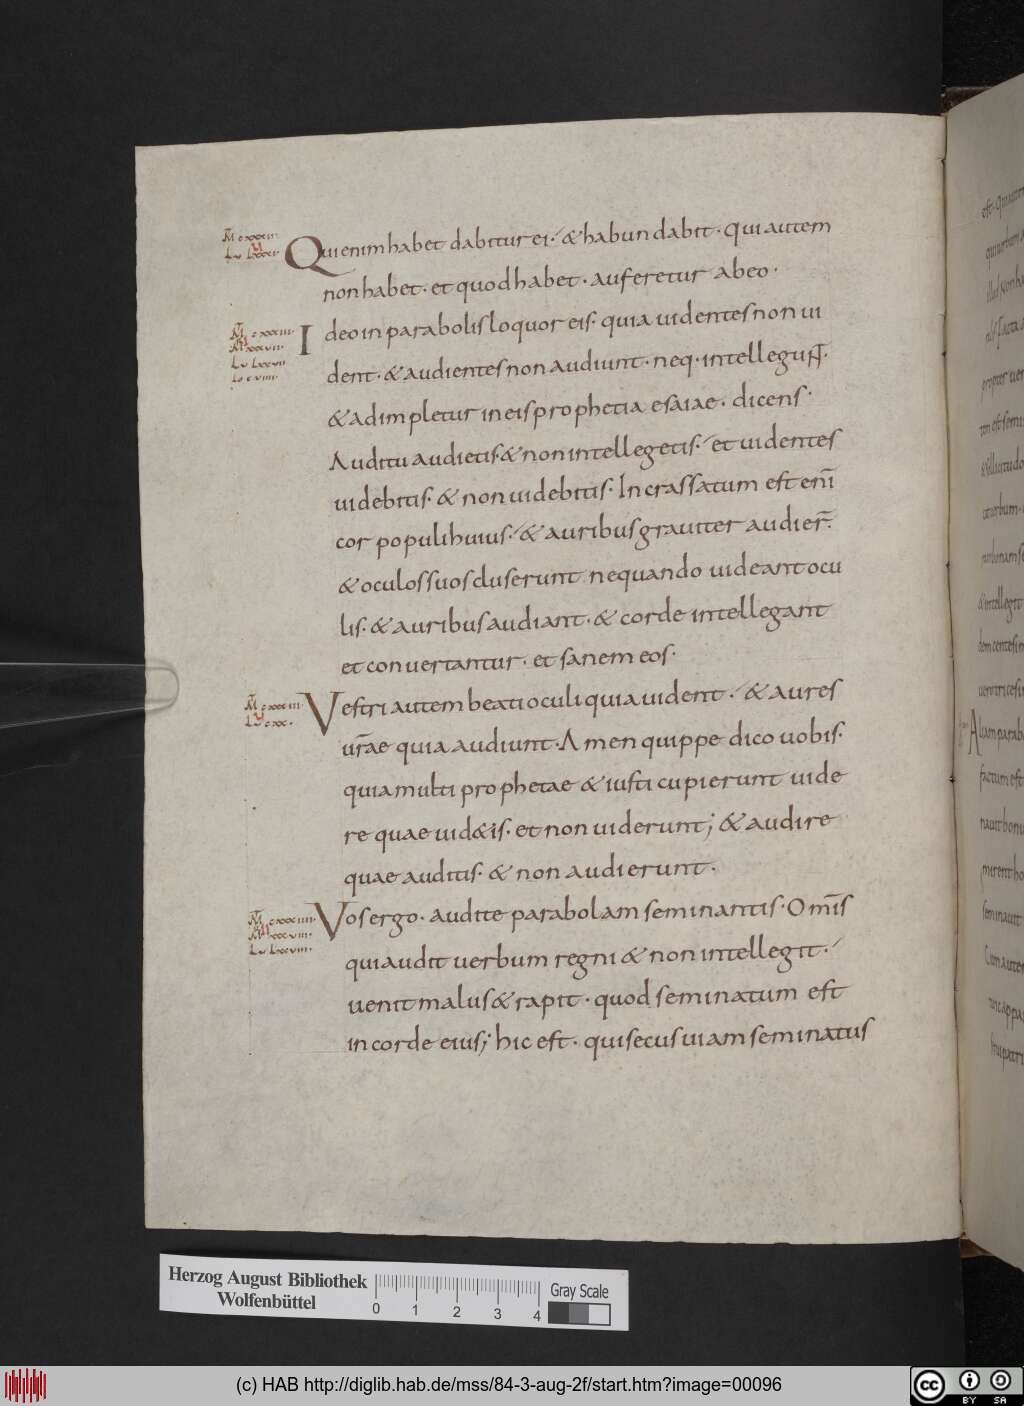 Qui enim habet dabitur ei · & habundabit · qui autem
non habet · et quod habet · auferetur ab eo ·
Ideo in parabolis loquor eis · quia uidentes non ui
dent · & audientes non audiunt · neq · intellegunt ·
& adimpletur in eis prophetia esaiae · dicens ·
Auditu audietis · & non intellegetis · et uidentes
uidebitis · & non uidebitis · Incrassatum est eni̅
cor populi huius · & auribus grauiter audier̅ ·
& oculos suos cluserunt nequando uideant ocu
lis · & auribus audiant · & corde intellegant
et conuertantur · et sanem eos ·
Vestri autem beati oculi quia uident · & aures
ur̅ae quia audiunt · Amen quippe dico uobis ·
quia multi prophetae & iusti cupierunt uide
re quae uid&is · et non uiderunt ; & audire
quae auditis · & non audierunt ·
Vos ergo · audite parabolam seminantis · Om̅is
qui audit uerbum regni & non intellegit ·
uenit malus & rapit · quod seminatum est
in corde eius ; hic est · qui secus uiam seminatus
Herzog August Bibliothek
Wolfenbüttel
0 1 2 3 4
Gray Scale
(c) HAB http://diglib.hab.de/mss/84-3-aug-2f/start.htm?image=00096
cc BY SA